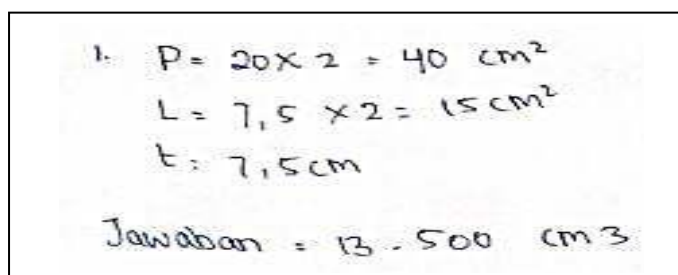 1. P = 20 x 2 = 40 cm²
L = 7,5 x 2 = 15 cm²
t = 7,5 cm
Jawaban = 13.500 cm3